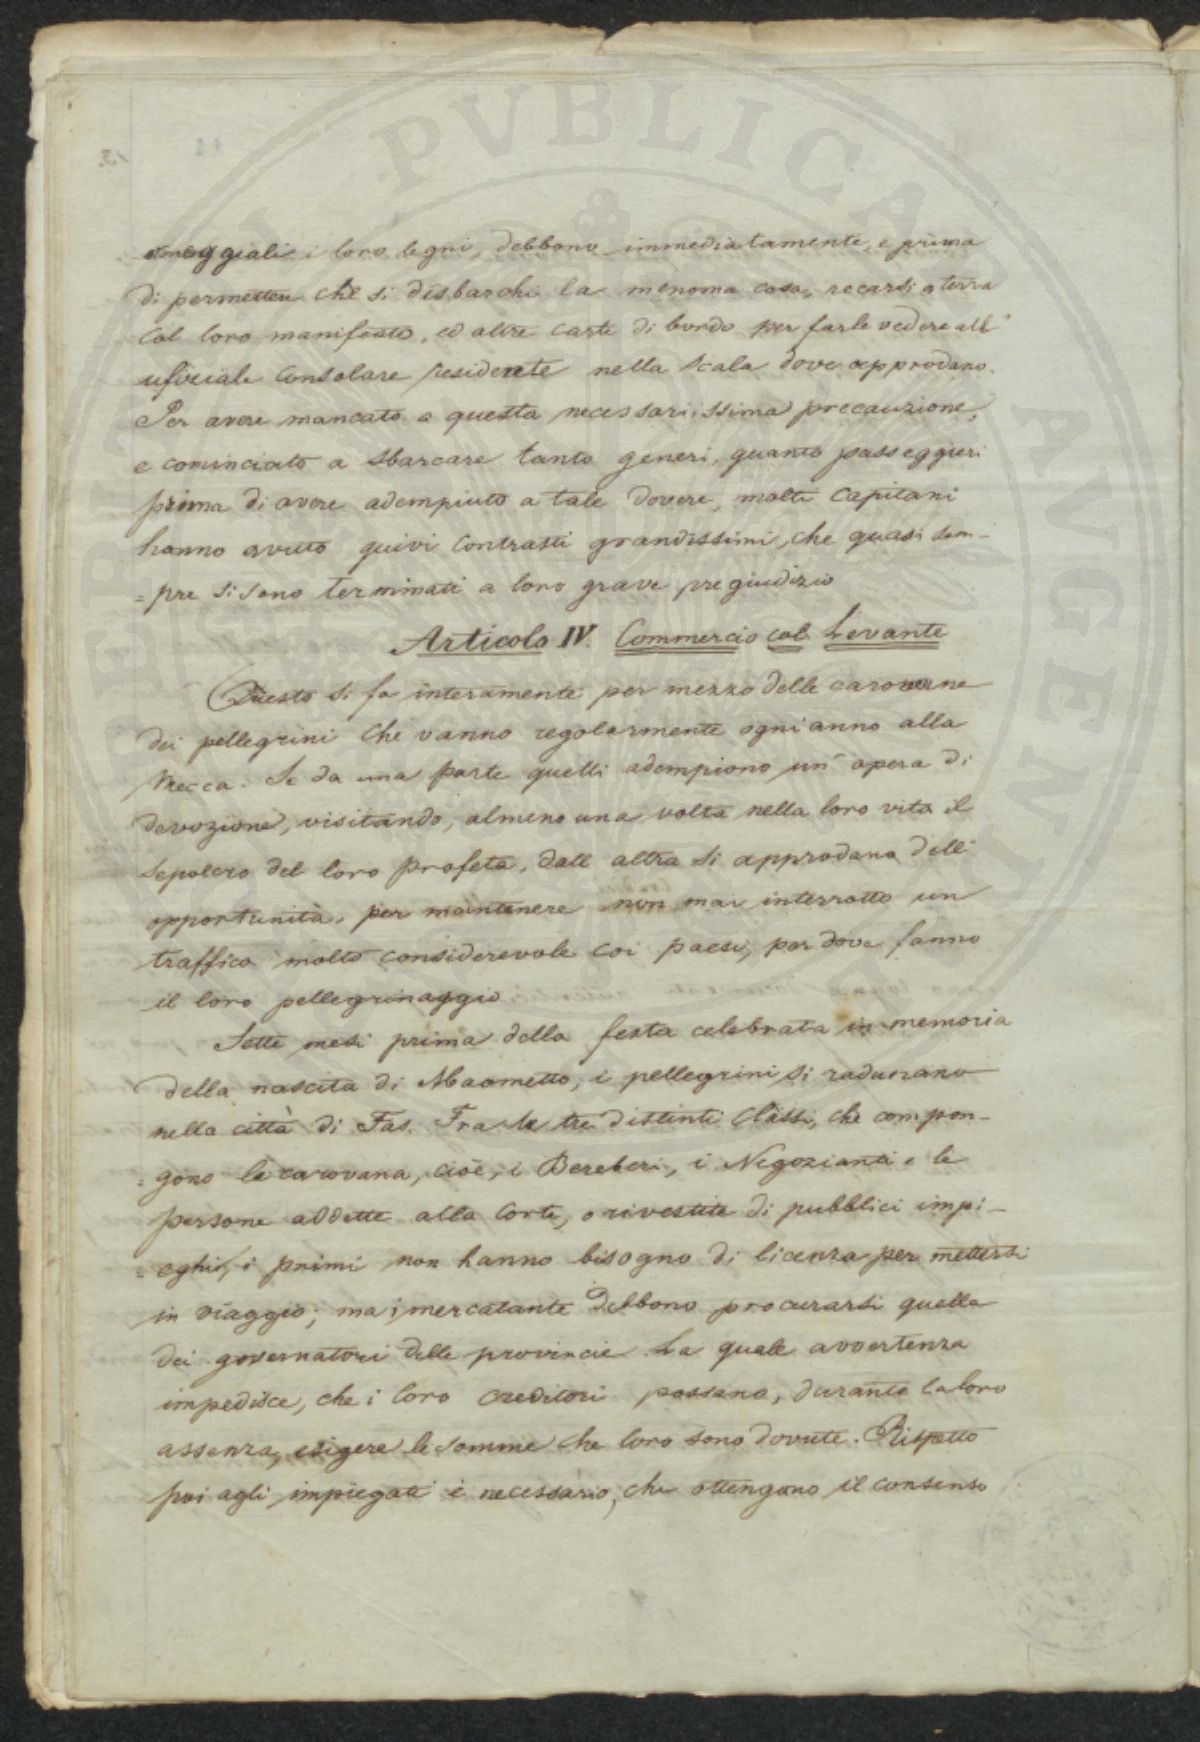 PVBLICA AVGENTIS
omeggiati i loro legni, debbono immediatamente, e prima
di permettere che si disbarchi la menoma cosa, recarsi a terra
col loro manifesto, ed altre carte di bordo per farle vedere all'
ufiziale Consolare residente nella Scala dove approdano.
Per avere mancato a questa necessariissima precauzione,
e cominciato a sbarcare tanto generi, quanto passeggieri
prima di avere adempiuto a tale dovere, molti Capitani
hanno avuto quivi contrasti grandissimi, che quasi sem-
=pre si sono terminati a loro grave pregiudizio
Articolo IV. Commercio col Levante
Questo si fa interamente per mezzo delle carovane
dei pellegrini che vanno regolarmente ogni anno alla
Mecca. Se da una parte quelli adempiono un' opera di
devozione, visitando, almeno una volta nella loro vita il
sepolcro del loro profeta, dall altra si approdano dell'
opportunità, per mantenere non mai interrotto un
traffico molto considerevole coi paesi, per dove fanno
il loro pellegrinaggio
Sette mesi prima della festa celebrata in memoria
della nascita di Maometto, i pellegrini si radunano
nella città di Fas. Fra le tre distinti Classi, che compon-
=gono la carovana, cioè, i Bereberi, i Negozianti e le
persone addette alla Corte, o rivestite di pubblici impi-
=eghi, i primi non hanno bisogno di licenza per mettersi
in viaggio; ma i mercatanti debbono procurarsi quella
dei governatori delle provincie. La quale avvertenza
impedisce, che i loro creditori possano, durante la loro
assenza, esigere le somme che loro sono dovute. Rispetto
poi agli impiegati è necessario, che ottengano il consenso